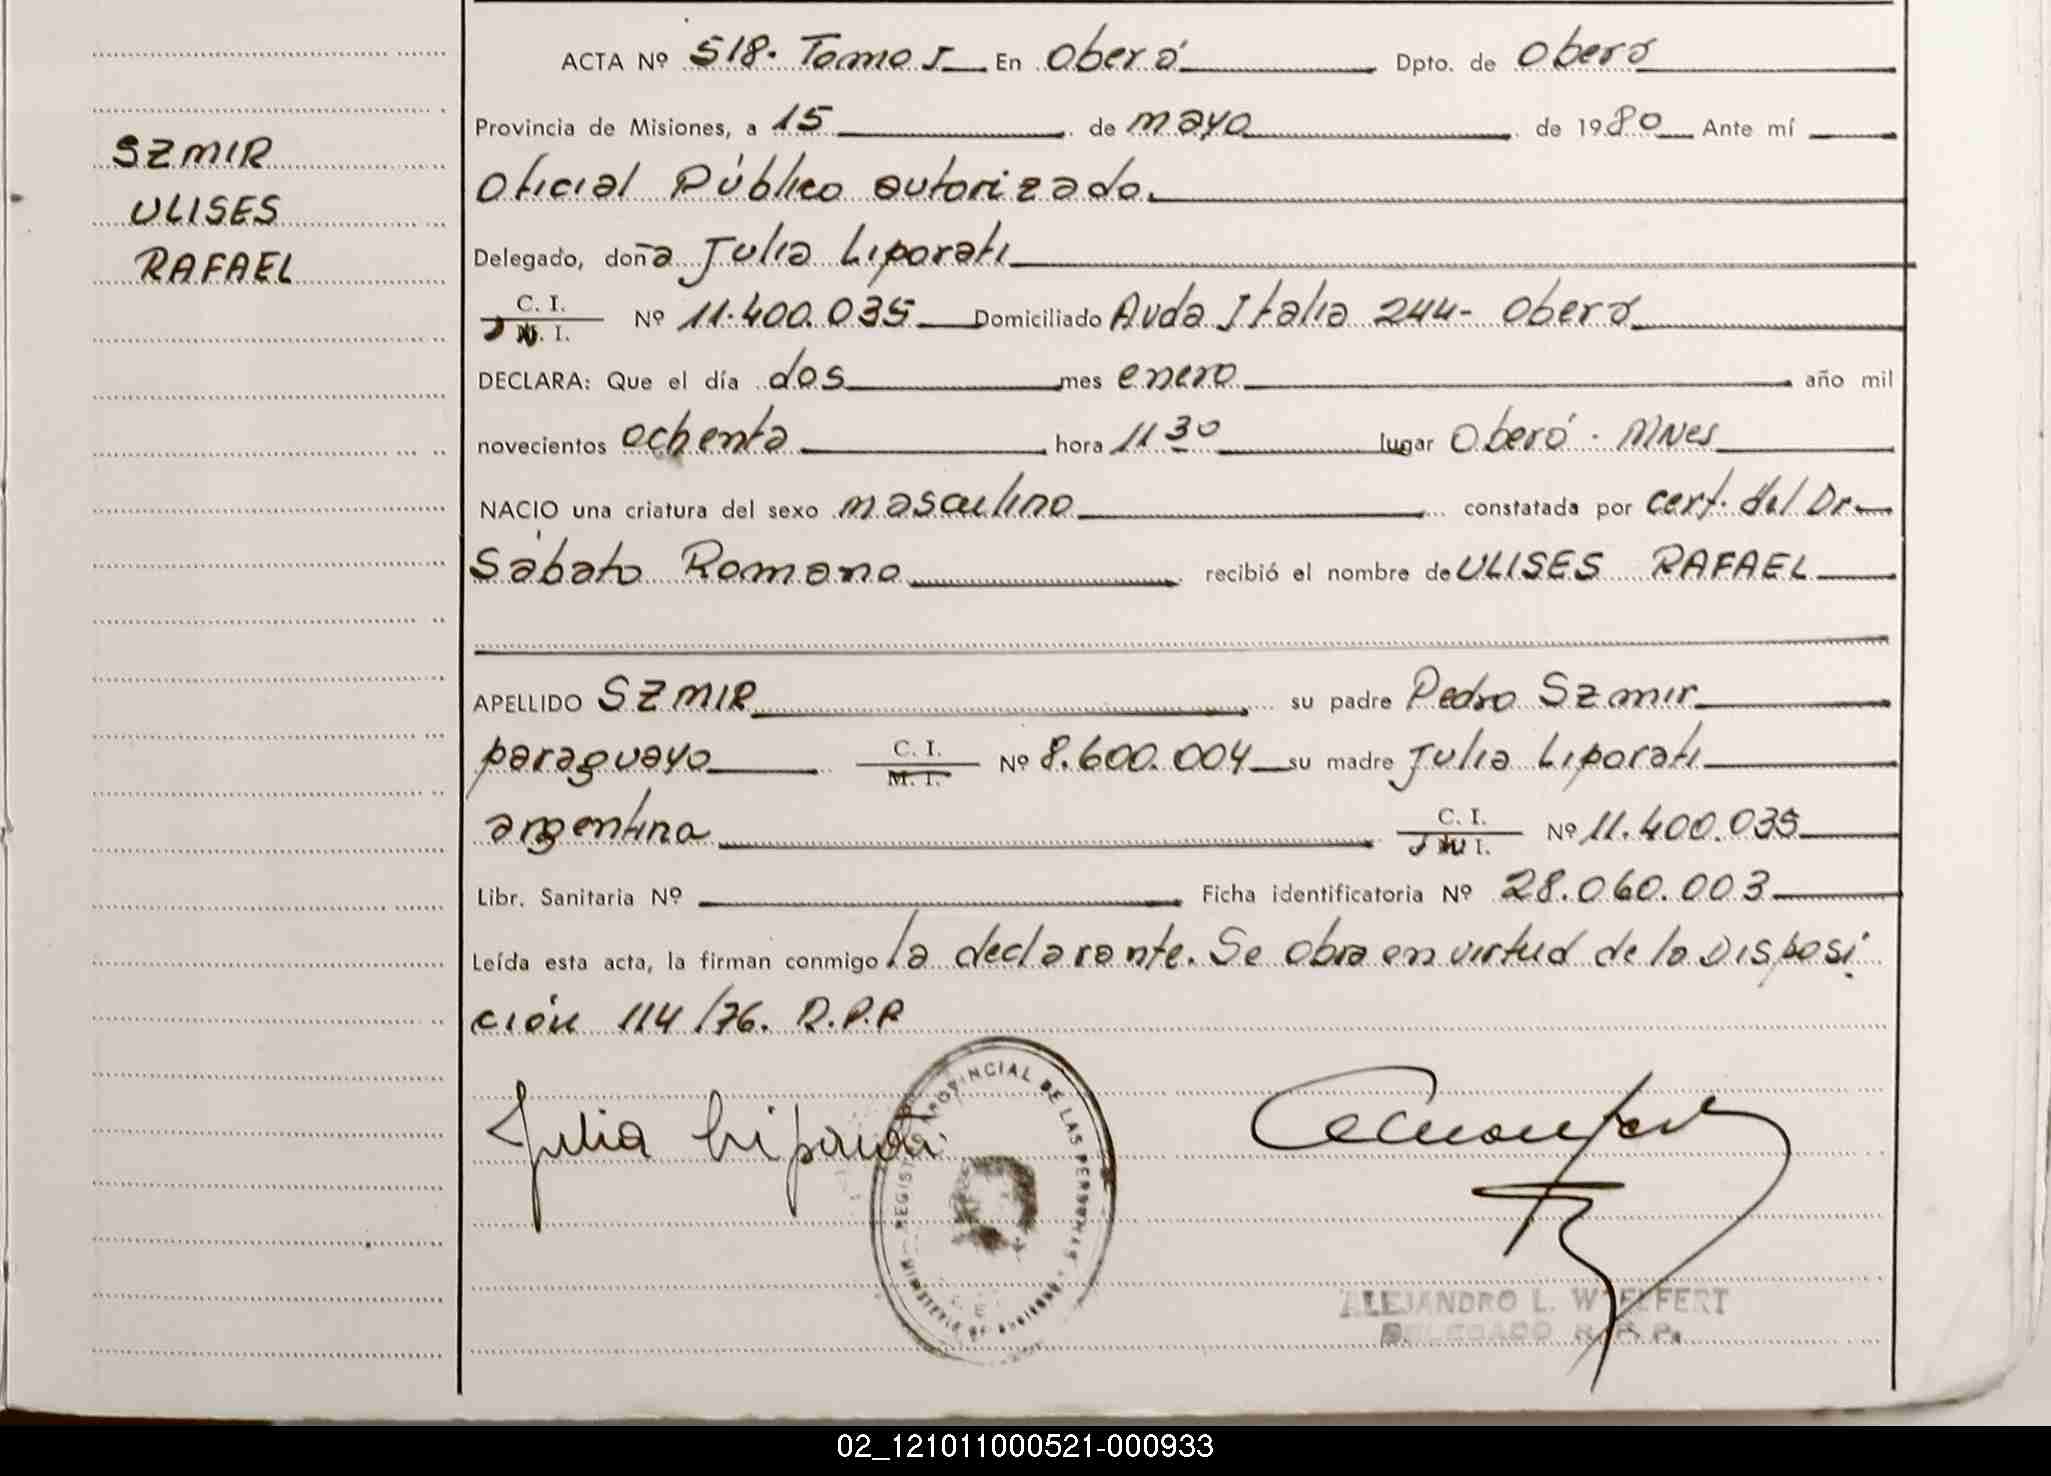 ACTA Nº 518. Tomo I En Oberá Dpto. de Oberá
Provincia de Misiones, a 15 de mayo de 1980 Ante mí
Oficial Público autorizado.
Delegado, doña Julia Liporati
C. I. D.N. I. Nº 11.400.035 Domiciliado Avda Italia 244- Oberá
DECLARA: Que el día dos mes enero año mil
novecientos ochenta hora 11 30 lugar Oberá - Mnes
NACIO una criatura del sexo masculino constatada por cert. del Dr.
Sábato Romano recibió el nombre de ULISES RAFAEL
APELLIDO SZMIR su padre Pedro Szmir
paraguayo C. I. M. I. Nº 8.600.004 su madre Julia Liporati
argentina C. I. Nº 11.400.035
Libr. Sanitaria Nº Ficha identificatoria Nº 28.060.003
Leída esta acta, la firman conmigo la declarante. Se obra en virtud de la Disposi
ción 114/76. R.P.P
SZMIR
ULISES
RAFAEL
Julia Liporati
REGISTRO PROVINCIAL DE LAS PERSONAS
MINISTERIO DE GOBIERNO
ALEJANDRO L. WOELFERT
DELEGADO R. P. P.
02_121011000521-000933